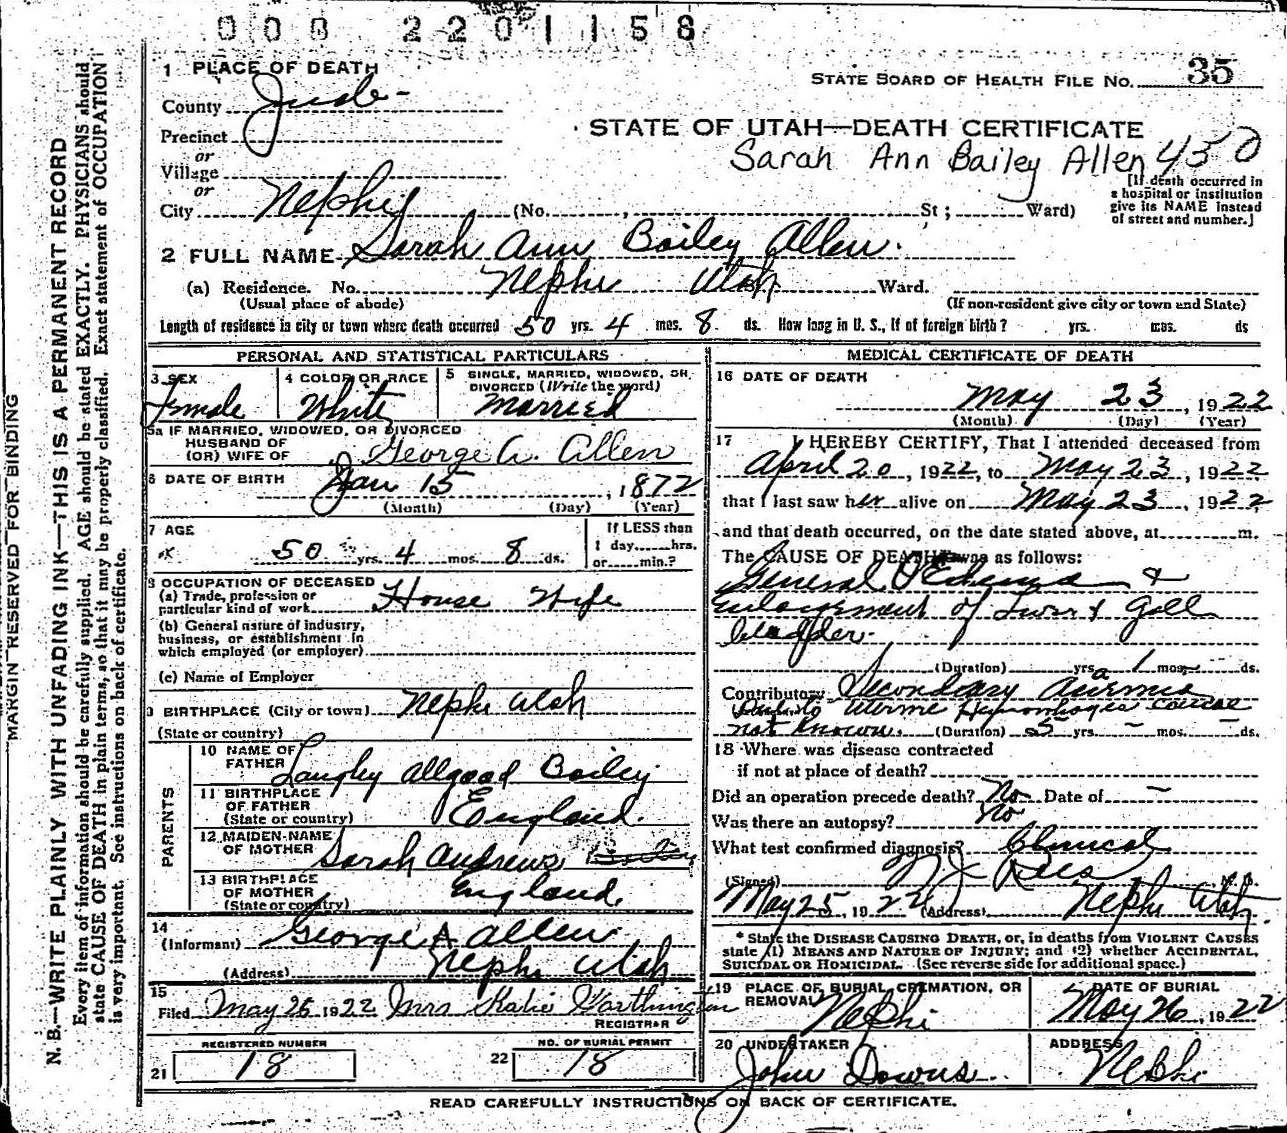 008 2201158
1 PLACE OF DEATH
STATE BOARD OF HEALTH FILE No. 35
County Juab
Precinct
or
STATE OF UTAH—DEATH CERTIFICATE
Sarah Ann Bailey Allen 450
Village
or
[If death occurred in
a hospital or institution
give its NAME instead
of street and number.]
City Nephi (No. , St ; Ward)
2 FULL NAME Sarah Ann Bailey Allen.
(a) Residence. No. Nephi Utah Ward.
(Usual place of abode) (If non-resident give city or town and State)
Length of residence in city or town where death occurred 50 yrs. 4 mos. 8 ds. How long in U. S., if of foreign birth? yrs. mos. ds
PERSONAL AND STATISTICAL PARTICULARS
3 SEX
Female
4 COLOR OR RACE
White
5 SINGLE, MARRIED, WIDOWED, OR
DIVORCED (Write the word)
Married
5a IF MARRIED, WIDOWED, OR DIVORCED
HUSBAND OF
(OR) WIFE OF George A. Allen
6 DATE OF BIRTH Jan 15, 1872
(Month) (Day) (Year)
7 AGE
50 yrs. 4 mos. 8 ds.
If LESS than
1 day......hrs.
or......min.?
8 OCCUPATION OF DECEASED
(a) Trade, profession or
particular kind of work House Wife
(b) General nature of industry,
business, or establishment in
which employed (or employer)
(c) Name of Employer
9 BIRTHPLACE (City or town) Nephi Utah
(State or country)
PARENTS
10 NAME OF
FATHER Langley Allgood Bailey
11 BIRTHPLACE
OF FATHER
(State or country) England.
12 MAIDEN-NAME
OF MOTHER Sarah Andrews
13 BIRTHPLACE
OF MOTHER
(State or country) England.
14
(Informant) George A Allen
(Address) Nephi Utah
15
Filed May 26 1922 Mrs Katie Worthington
REGISTRAR
REGISTERED NUMBER
21 18
NO. OF BURIAL PERMIT
22 18
MEDICAL CERTIFICATE OF DEATH
16 DATE OF DEATH
May 23, 1922
(Month) (Day) (Year)
17 I HEREBY CERTIFY, That I attended deceased from
April 20, 1922, to May 23, 1922
that I last saw her alive on May 23, 1922
and that death occurred, on the date stated above, at m.
The CAUSE OF DEATH* was as follows:
General Oedema &
Enlargement of Liver & Gall
bladder.
(Duration) yrs. 1 mos. - ds.
Contributory Secondary Anemia
due to Uterine Hemorrhages cause
not known. (Duration) 5 yrs. - mos. - ds.
18 Where was disease contracted
if not at place of death?
Did an operation precede death? No Date of -
Was there an autopsy? No
What test confirmed diagnosis? Clinical
(Signed) M. D.
May 25, 1922 (Address) Nephi Utah
* State the DISEASE CAUSING DEATH, or, in deaths from VIOLENT CAUSES
state (1) MEANS AND NATURE OF INJURY; and (2) whether ACCIDENTAL,
SUICIDAL OR HOMICIDAL. (See reverse side for additional space.)
19 PLACE OF BURIAL, CREMATION, OR
REMOVAL Nephi
DATE OF BURIAL
May 26, 1922
20 UNDERTAKER
John Downs
ADDRESS
Nephi
READ CAREFULLY INSTRUCTIONS ON BACK OF CERTIFICATE.
MARGIN RESERVED FOR BINDING
N. B.—WRITE PLAINLY WITH UNFADING INK—THIS IS A PERMANENT RECORD
Every item of information should be carefully supplied. AGE should be stated EXACTLY. PHYSICIANS should
state CAUSE OF DEATH in plain terms, so that it may be properly classified. Exact statement of OCCUPATION
is very important. See instructions on back of certificate.